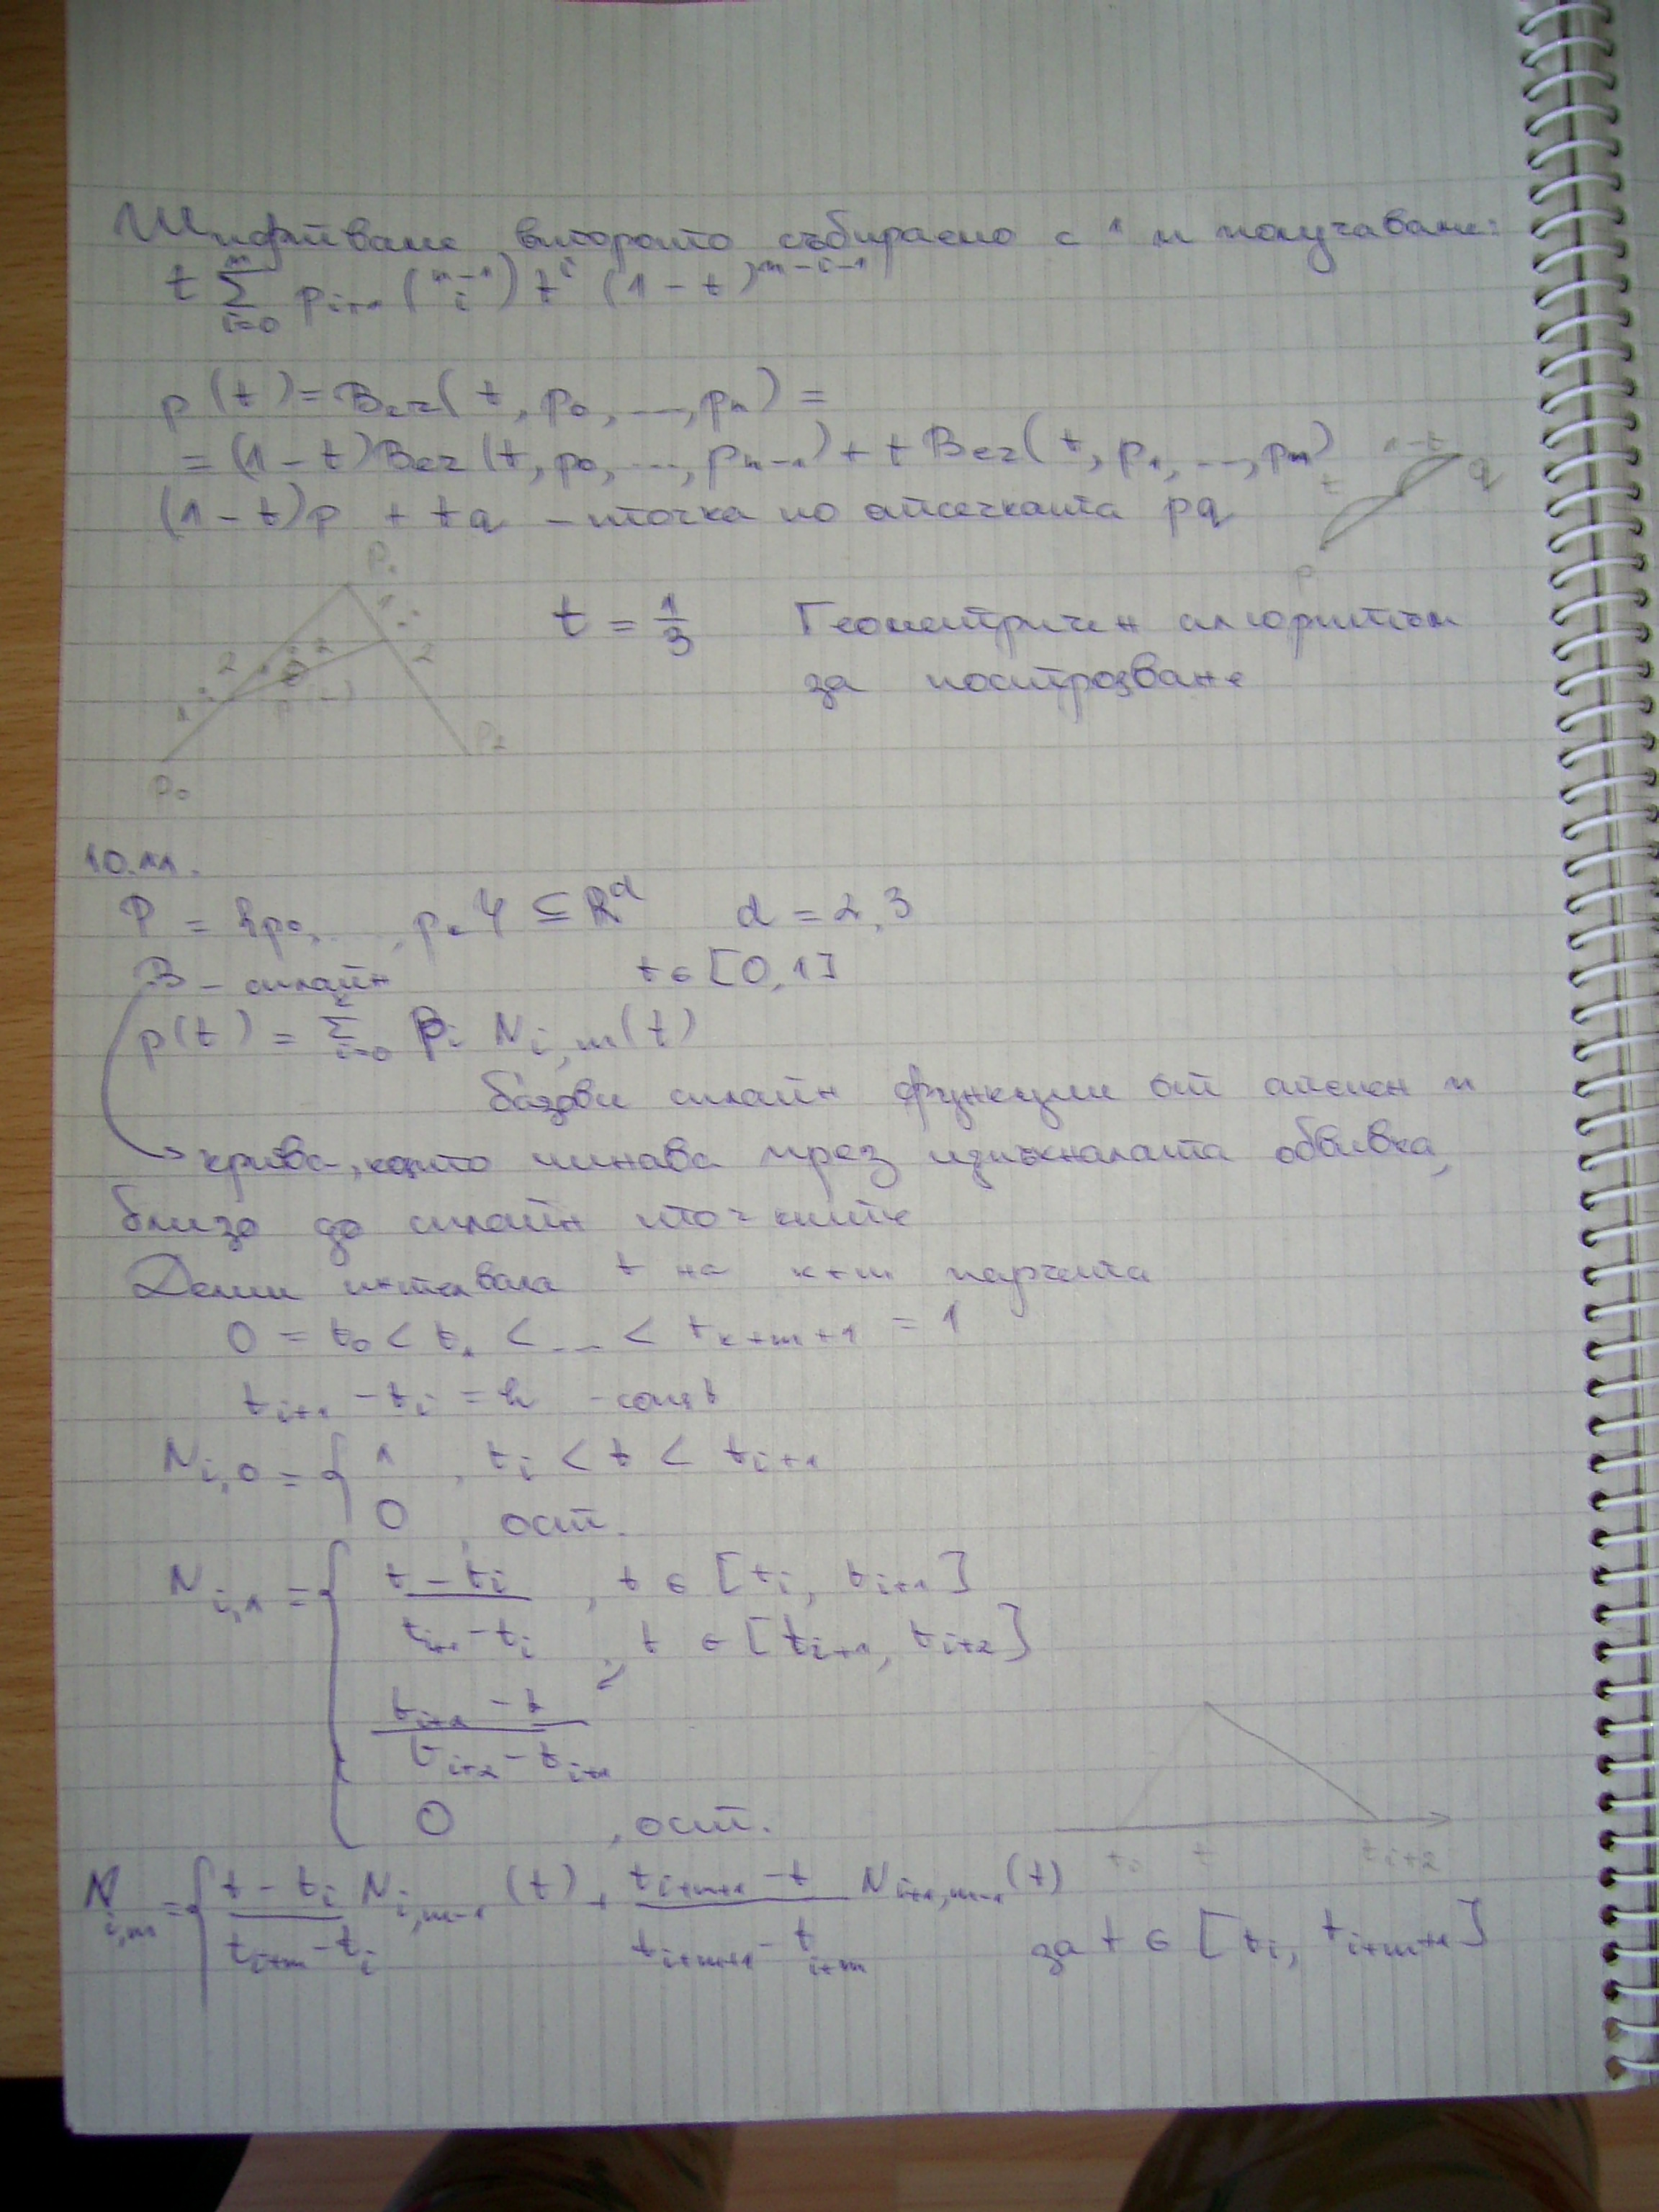 Шифтваме второто събираемо с 1 и получаваме:
t Σ_{i=0}^{n} p_{i+1} (n-1 i) t^i (1-t)^{n-i-1}
p(t) = Bez(t, p0, ..., pn) =
= (1-t)Bez(t, p0, ..., pn-1) + t Bez(t, p1, ..., pn)
1-t
t
q
p
(1-t)p + tq - точка по отсечката pq
P1
t = 1/3 Геометричен алгоритъм
за построяване
1
2
2
2
1
P0
P2
10.11.
P = {p0, ..., pк} ⊆ R^d d = 2, 3
B - сплайн t ∈ [0, 1]
p(t) = Σ_{i=0}^{к} pi N_{i,m}(t)
базови сплайн функции от степен m
крива, която минава през изпъкналата обвивка,
близо до сплайн точките
Дели интервала t на к+m парчета
0 = t0 < t1 < ... < t_{к+m+1} = 1
t_{i+1} - t_i = h - const
N_{i,0} = { 1 , t_i < t < t_{i+1}
0 , ост.
N_{i,1} = { (t - t_i)/(t_{i+1} - t_i) , t ∈ [t_i, t_{i+1}]
, t ∈ [t_{i+1}, t_{i+2}]
(t_{i+2} - t)/(t_{i+2} - t_{i+1})
0 , ост.
t_i t t_{i+2}
N_{i,m} = { (t - t_i)/(t_{i+m} - t_i) N_{i,m-1}(t) + (t_{i+m+1} - t)/(t_{i+m+1} - t_{i+m}) N_{i+1,m-1}(t)
за t ∈ [t_i, t_{i+m+1}]